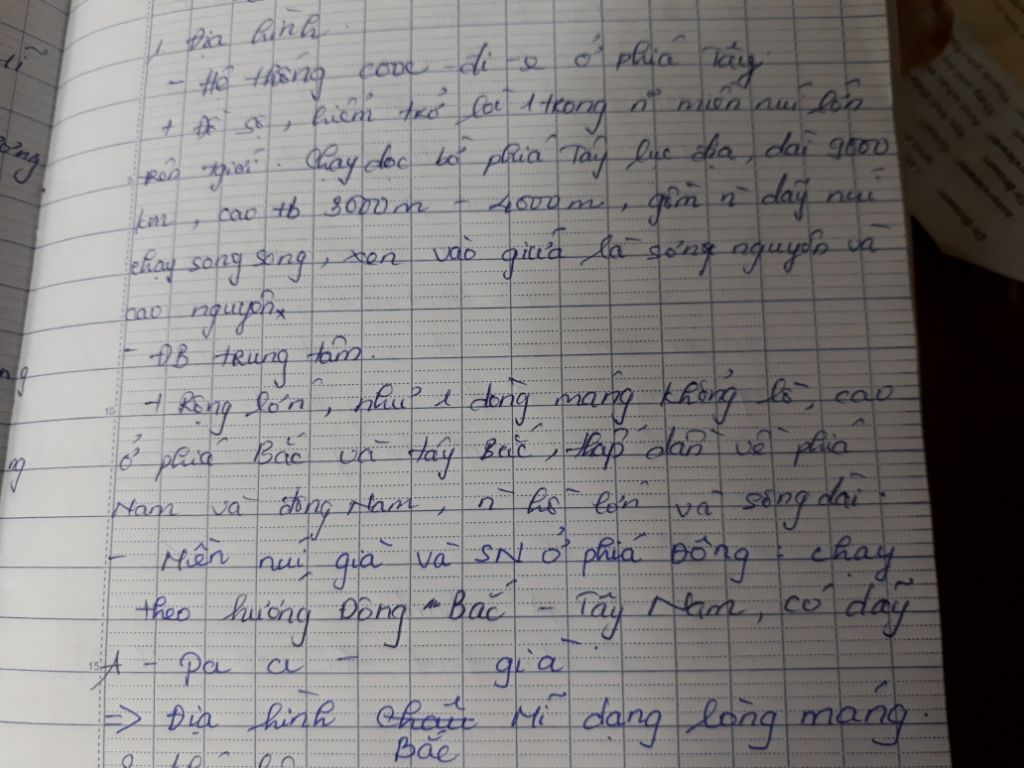 1, Địa hình.
- Hệ thống cooc-di-e ở phía Tây.
+ Đồ sộ, hiểm trở là 1 trong n miền núi lớn
trên giới. Chạy dọc bờ phía Tây lục địa, dài 9000
km, cao tb 3000m - 4000m, gồm n dãy núi
chạy song song, xen vào giữa là sơng nguyên và
cao nguyên
- ĐB trung tâm.
+ Rộng lớn, như 1 lòng máng khổng lồ, cao
ở phía Bắc và tây Bắc, thấp dần về phía
Nam và đông Nam, n hồ lớn và sông dài.
- Miền núi già và SN ở phía Đông: chạy
theo hướng Đông - Bắc - Tây Nam, có dãy
A - pa a - già
=> Địa hình Mĩ dạng lòng máng.
Bắc